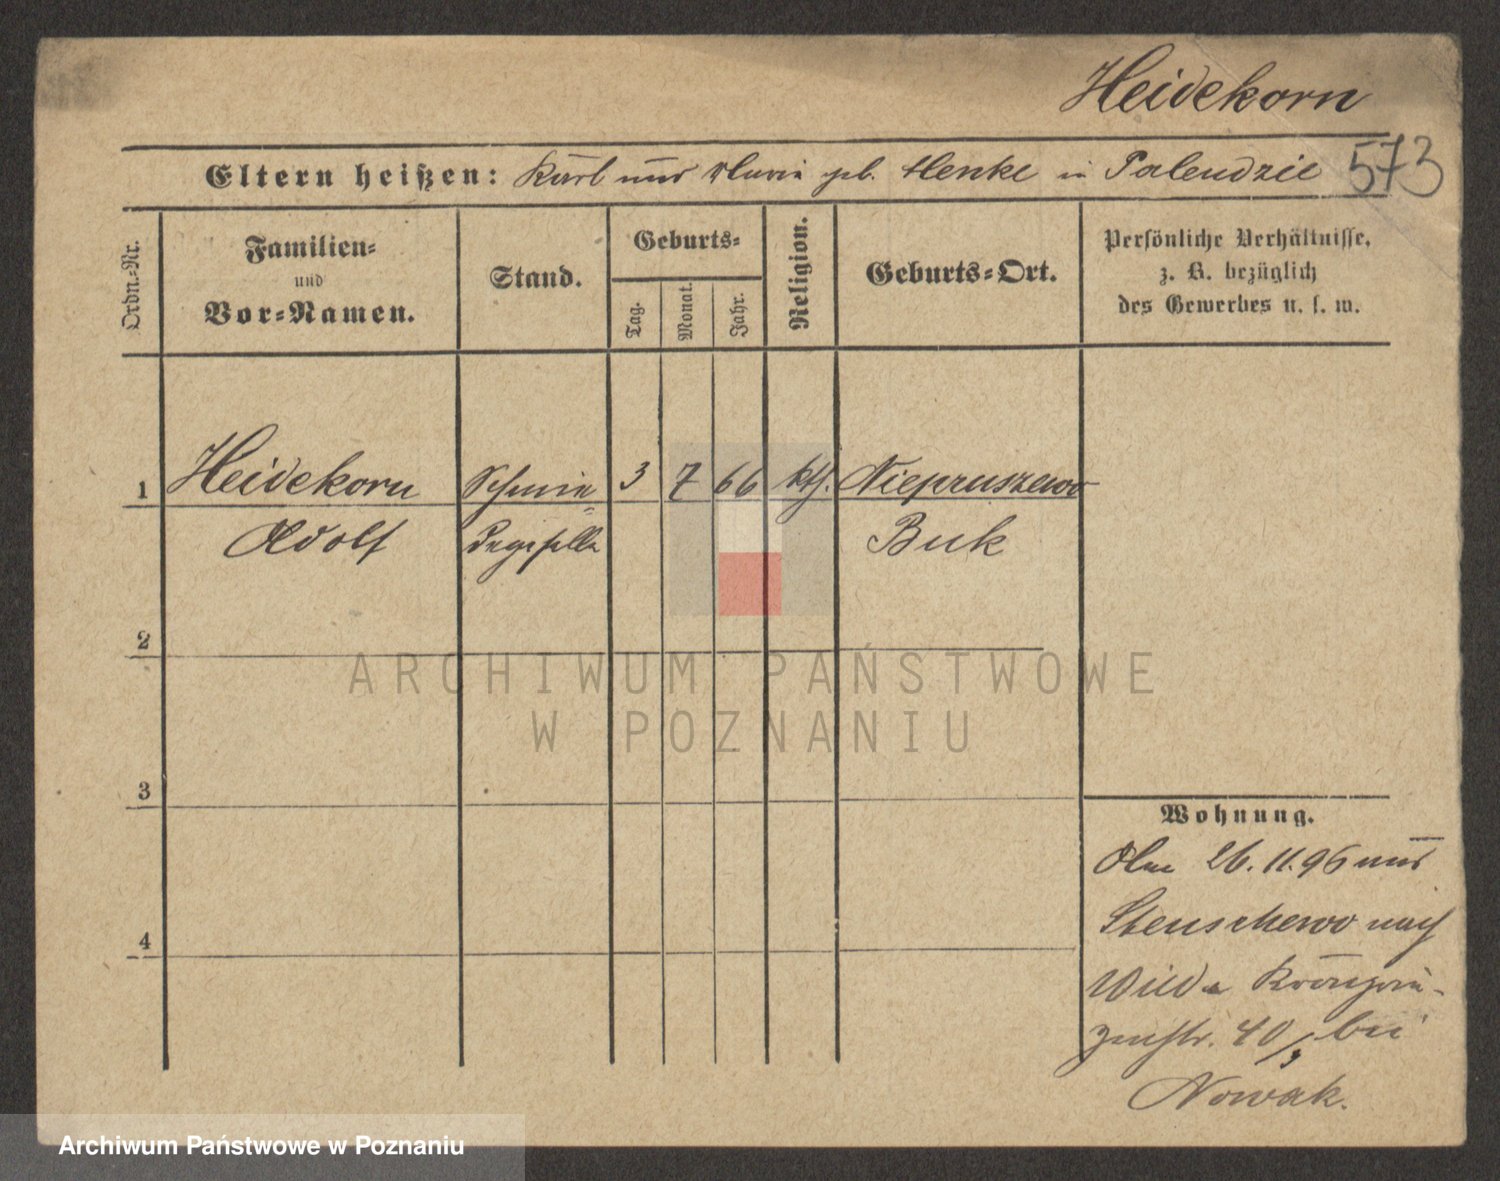 Heidekorn
573
Eltern heißen: Karl und Maria geb. Henke in Palendzie
Ordn.-Nr.
Familien-
und
Vor-Namen.
Stand.
Geburts-
Tag.
Monat.
Jahr.
Religion.
Geburts-Ort.
Persönliche Verhältnisse,
z. B. bezüglich
des Gewerbes u. s. w.
1 Heidekorn Schmie= 3 7 66 kth. Niepruszewo
Adolf degeselle Buk
2
3
4
Wohnung.
Am 26.11.96 aus
Stenschewo nach
Wilda Kronprin-
zenstr. 40/, bei
Nowak.
ARCHIWUM PAŃSTWOWE
W POZNANIU
Archiwum Państwowe w Poznaniu